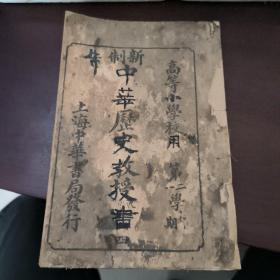 高等小學校用
第一二學期
新制
中華歷史教授書
四
上海中華書局發行